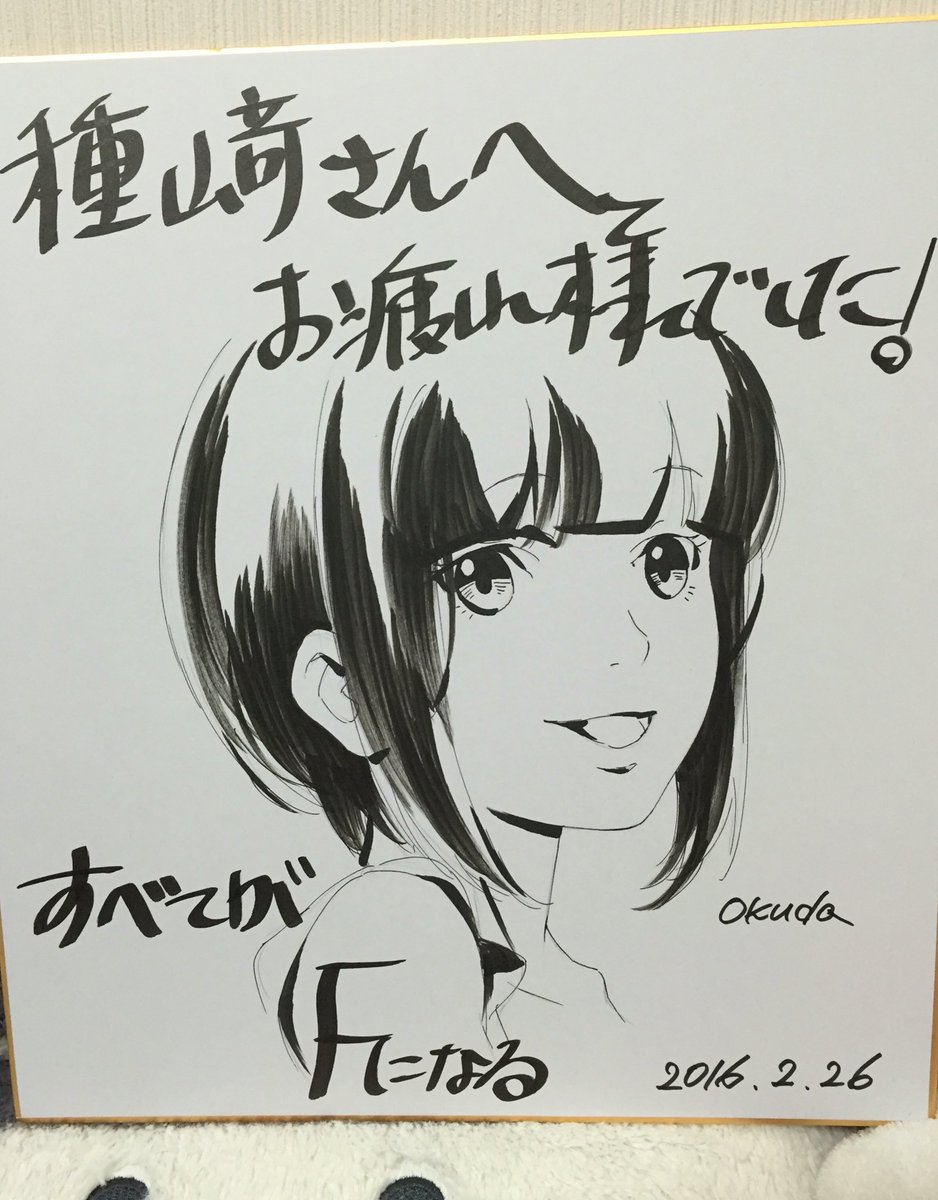 種﨑さんへ
お疲れ様でした!
すべてが
Fになる
Okuda
2016.2.26